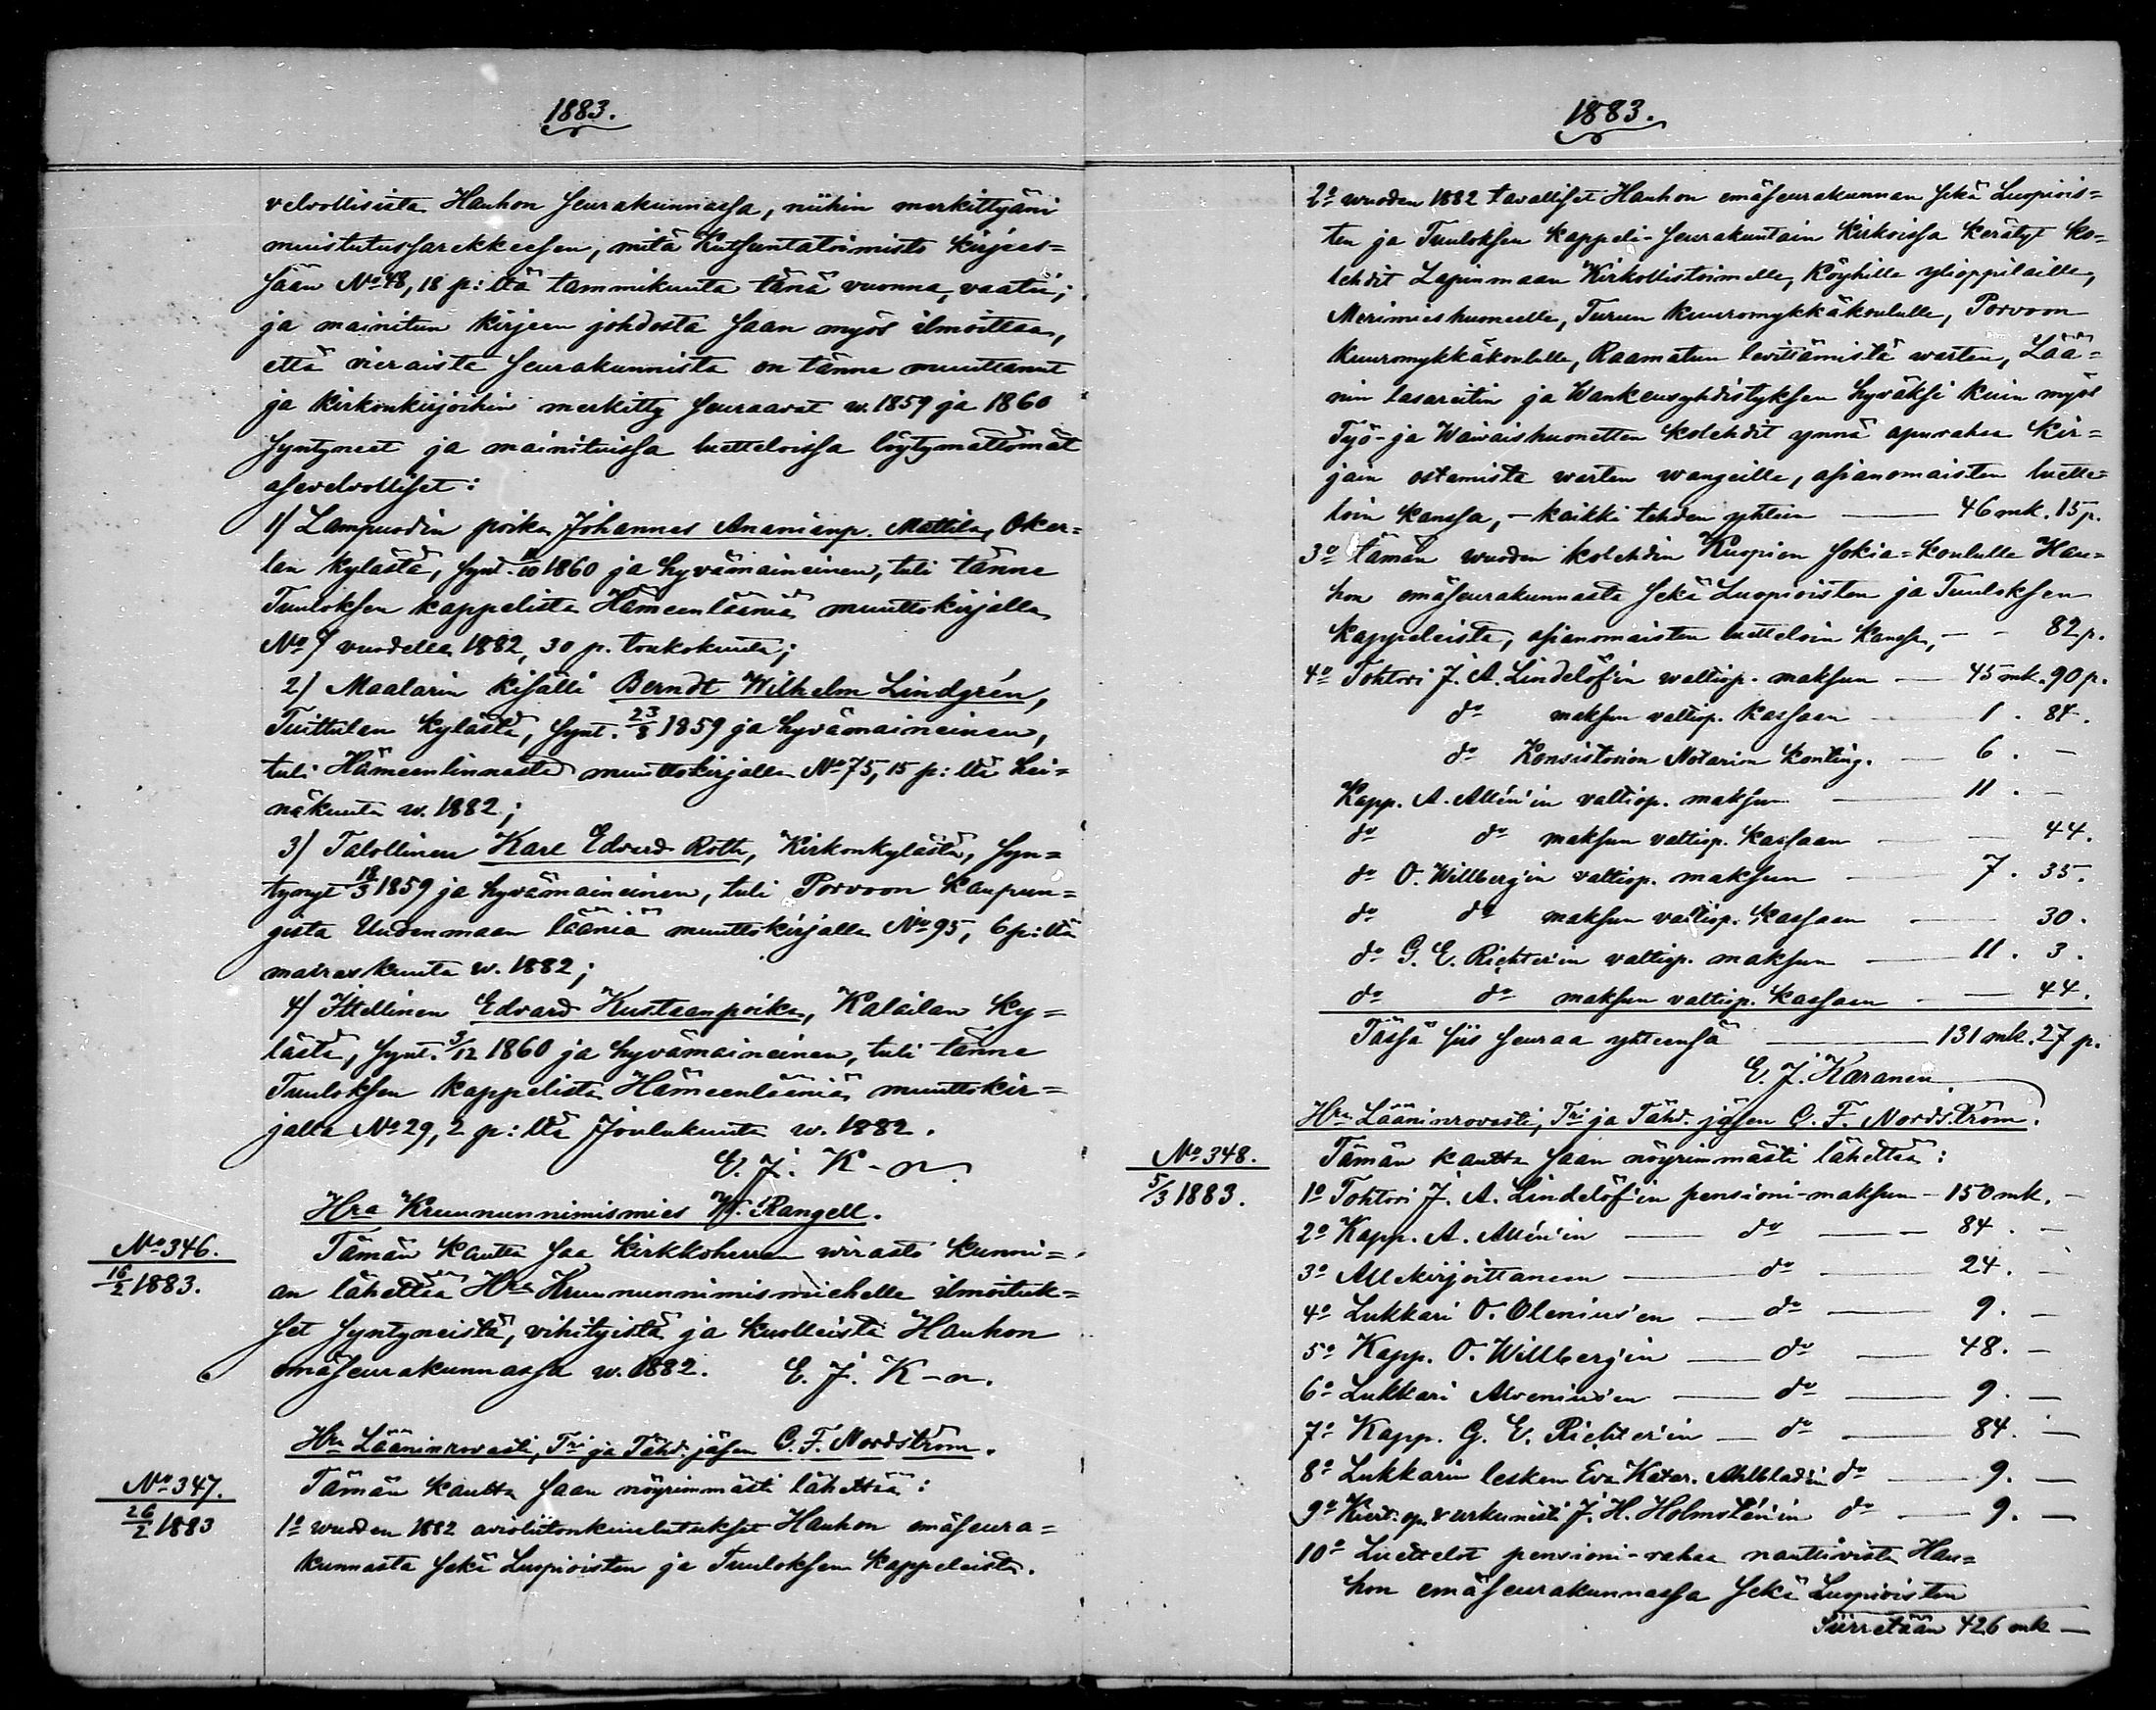 1883.
velvollisista Hauhon seurakunnassa, niihin merkittyäni
muistutussarekkeesen, mitä Kutsuntatoimisto kirjees-
sään No 48, 18 p:ltä tammikuuta tänä vuonna, vaatii;
ja mainitun kirjeen johdosta saan myös ilmoittaa,
että vieraista seurakunnista on tänne muuttanut
ja kirkonkirjoihin merkitty seuraavat w. 1859 ja 1860
syntyneet ja mainituissa luetteloissa löytymättömät
asevelvolliset:
1) Lampuodin poika Johannes Ananianp. Mattila, Oker-
lan kylästä, synt. 11/10 1860 ja hyvämaineinen, tuli tänne
Tuuloksen kappelista Hämeenlääniä muuttokirjalla
No 7 vuodella 1882, 30 p. toukokuuta;
2) Maalarin kisälli Berndt Wilhelm Lindgrén,
Tuittulan kylästä, synt. 23/8 1859 ja hyvämaineinen,
tuli Hämeenlinnasta muuttokirjalla No 75, 15 p:ltä hei-
näkuuta w. 1882;
3) Talollinen Karl Edvard Roth, Kirkonkylästä, syn-
tynyt 18/3 1859 ja hyvämaineinen, tuli Porvoon kaupun-
gista Uudenmaan lääniä muuttokirjalla No 95, 6 p:ltä
marraskuuta w. 1882;
4) Itellinen Edvard Kustaanpoika, Kalailan ky-
lästä, synt. 3/12 1860 ja hyvämaineinen, tuli tänne
Tuuloksen kappelista Hämeenlääniä muuttokir-
jalla No 29, 2 p:ltä Joulukuuta w. 1882.
E. J. K-n.
Hra Kruununnimismies W. Rangell.
No 346.
16/2 1883.
Tämän kautta saa Kirkkoherran wirasto kunni-
an lähettää Hra Kruununnimismiehelle ilmoituk-
set syntyneistä, vihityistä ja kuolleista Hauhon
emäseurakunnassa w. 1882. E. J. K-n.
Hra Lääninrovasti, Tri ja Tähd. jäsen C. F. Nordström.
No 347.
26/2 1883
Tämän kautta saan nöyrimmästi lähettää:
1o wuoden 1882 avioliitonkuulutukset Hauhon emäseura-
kunnasta sekä Luopioisten ja Tuuloksen kappeleista.
1883.
2o wuoden 1882 tavalliset Hauhon emäseurakunnan sekä Luopiois-
ten ja Tuuloksen kappeli-seurakuntain kirkoissa kerätyt ko-
lehdit Lapinmaan Kirkollistoimelle, Köyhille ylioppilaille,
Merimieshuoneelle, Turun kuuromykkäkoululle, Porvoon
kuuromykkäkoululle, Raamatun levittämistä warten, Lää-
nin lasaretin ja Wankeusyhdistyksen hyväksi kuin myös
Työ- ja Waivaishuonetten kolehdit ynnä apurahaa kir-
jain ostamista warten wangeille, asianomaisten luette-
loin kanssa, - kaikki tehden yhteen — 46 mk. 15 p.
3o tämän wuoden kolehdin Kuopion sokia-koululle Hau-
hon emäseurakunnasta sekä Luopioisten ja Tuuloksen
kappeleista, asianomaisten luetteloin kanssa, - - 82 p.
4o Tohtori J. A. Lindelöf'in waltiop. maksun — 45 mk. 90 p.
do maksun valtiop. kassaan — 1. 84.
do Konsistorion Notarion konting. — 6. -
Kapp. A. Allén'in valtiop. maksun — 11. -
do do maksun valtiop. kassaan — 44.
do O. Willberg'in valtiop. maksun — 7. 35.
do do maksun valtiop. kassaan — 30.
do G. E. Richter'in valtiop. maksun — 11. 3.
do do maksun valtiop. kassaan — 44.
Tässä siis seuraa yhteensä — 131 mk. 27 p.
E. J. Karanen
Hra Lääninrovasti, Tri ja Tähd. jäsen C. F. Nordström.
No 348.
5/3 1883.
Tämän kautta saan nöyrimmästi lähettää:
1o Tohtori J. A. Lindelöf'in pensioni-maksun - 150 mk. -
2o Kapp. A. Allén'in — do — 84. -
3o Allekirjoittaneen — do — 24. -
4o Lukkari O. Olenius'en — do — 9. -
5o Kapp. O. Willberg'in — do — 48. -
6o Lukkari Alvenius'en — do — 9. -
7o Kapp. G. E. Richter'in — do — 84. -
8o Lukkarin lesken Eva Katar. Ahlblad'in do — 9. -
9o Kiert. op. & urkunisti J. H. Holmstén'in do — 9. -
10o Luettelot pensioni-rahaa nauttivista Hau-
hon emäseurakunnassa sekä Luopioisten
Siirretään 426 mk —